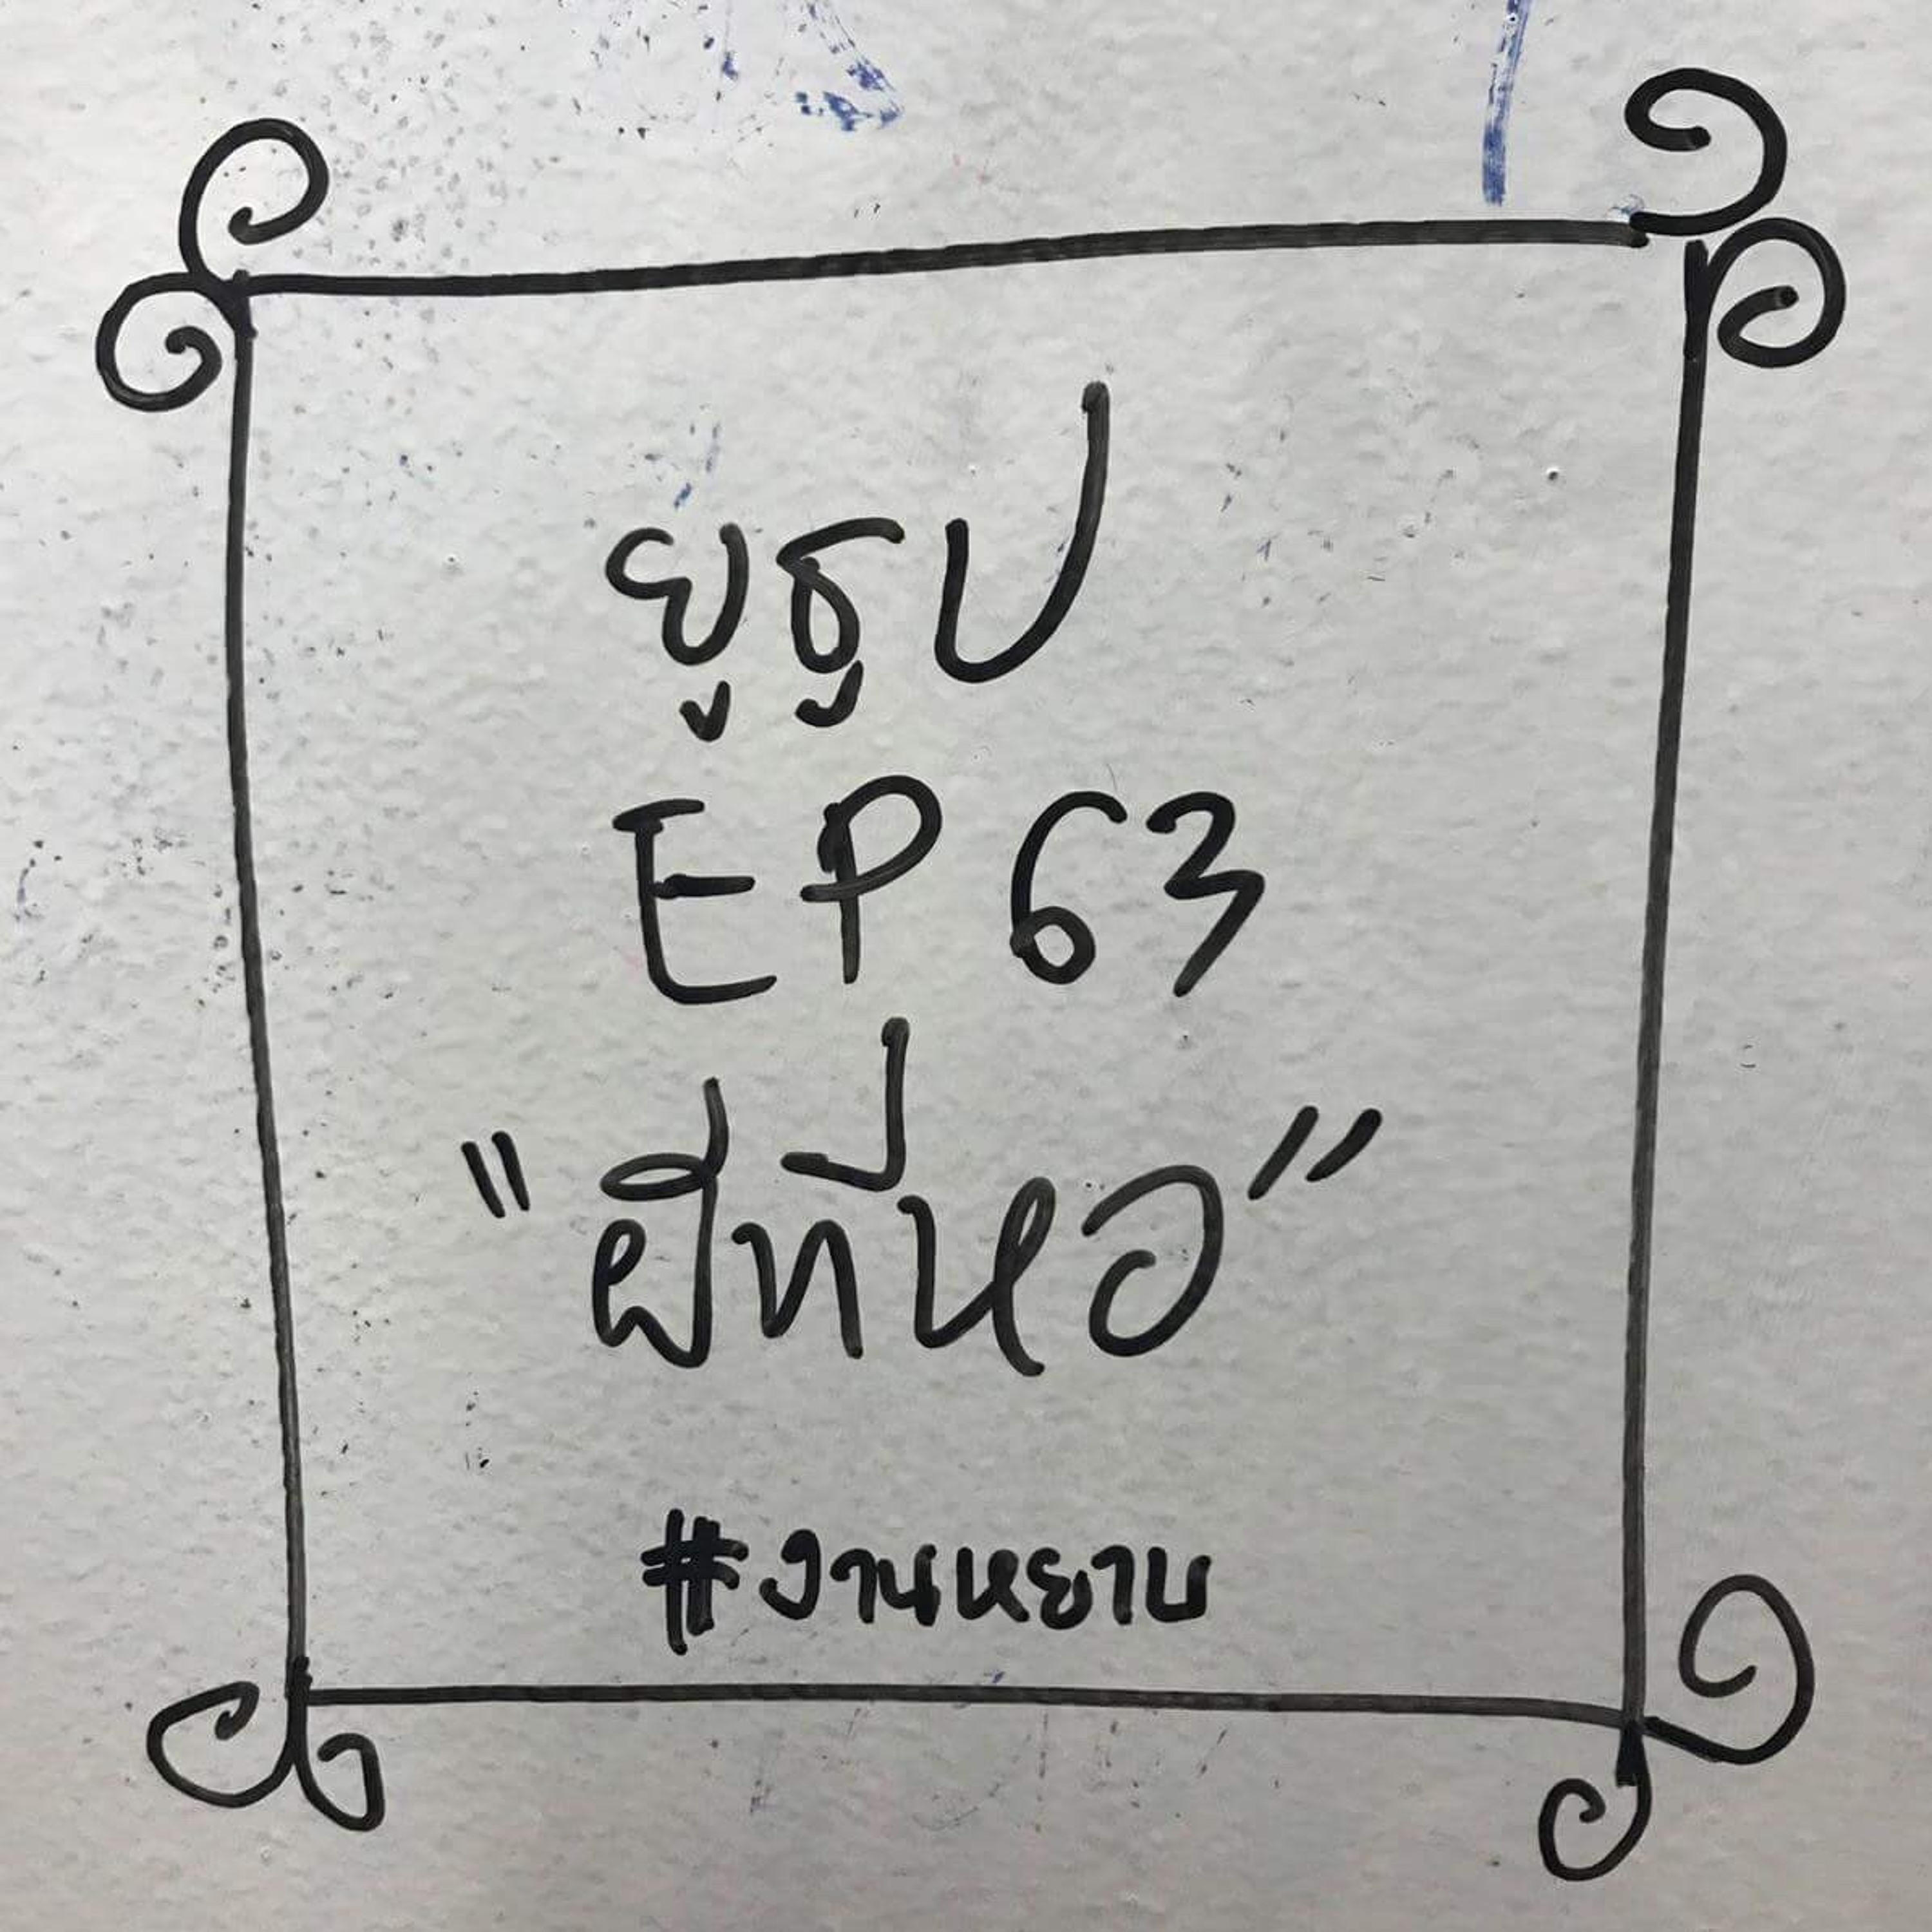 ยูธูป
EP 63
"ผีที่หอ"
#งานหยาบ